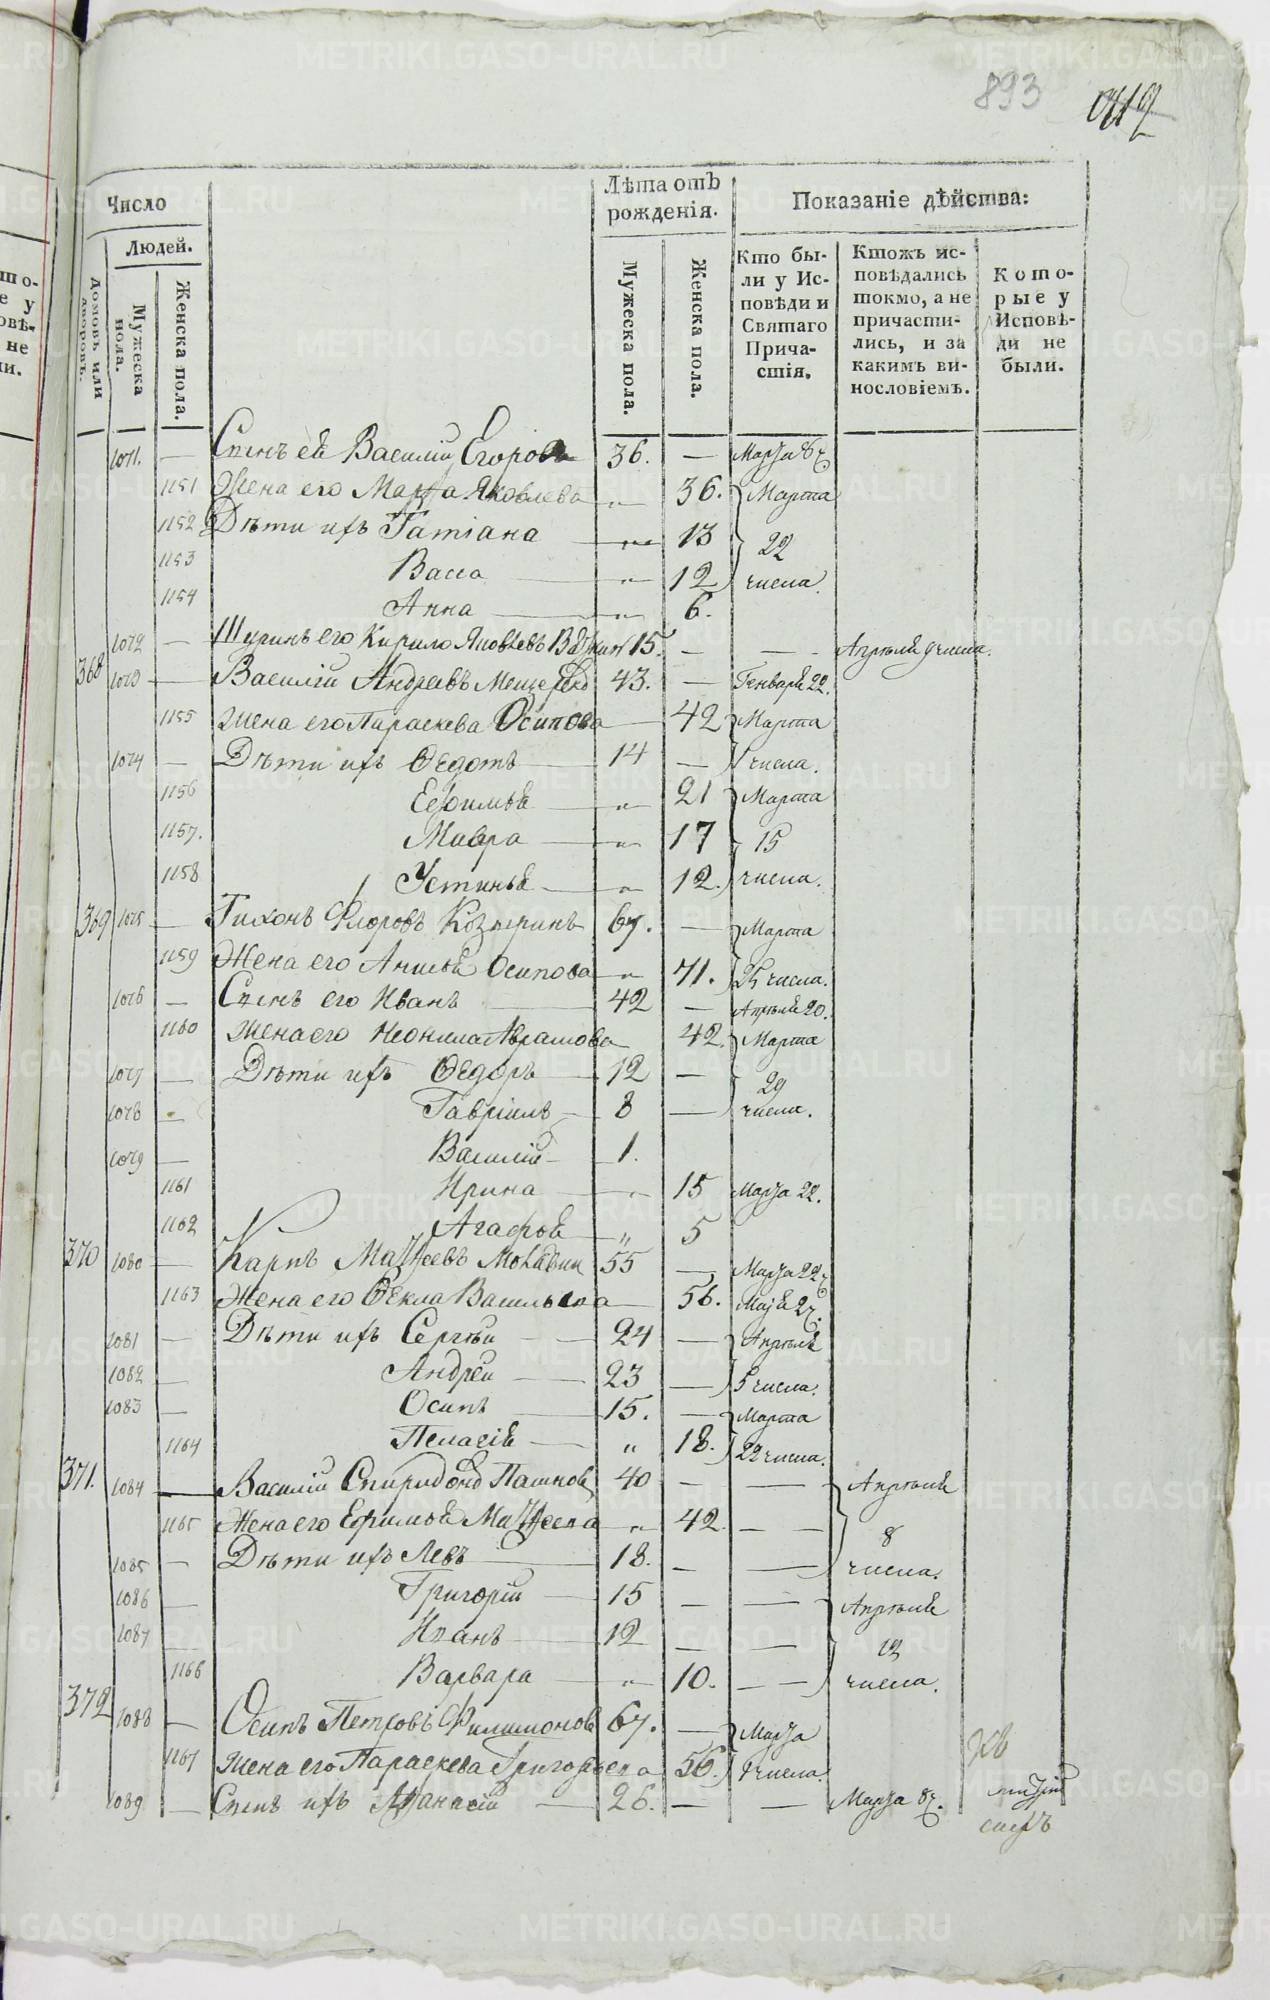 893
Число
Людей.
Домовъ или дворовъ.
Мужеска пола.
Женска пола.
Лѣта отъ рожденія.
Мужеска пола.
Женска пола.
Показаніе дѣйства:
Кто были у Исповѣди и Святаго Причастія.
Ктожъ исповѣдались токмо, а не причастились, и за какимъ винословіемъ.
Которые у Исповѣди не были.
1071. — Сынъ еѣ Василій Егоровъ 36. — Марта 8 ч.
1151 Жена его Марѳа Яковлева „ 36. Марта
1152 Дѣти ихъ Татіана — „ 13 22
1153 Васса — „ 12 числа.
1154 Анна — „ 6.
1072 — Шуринъ его Кирило Яковлевъ 15. — — Апрѣля 9 числа.
368 1073 — Василій Андреевъ 43. — Генваря 22.
1155 Жена его Параскева Осипова — 42 Марта
1074 — Дѣти ихъ Ѳедотъ — 14 — числа.
1156 Ефимья — „ 21 Марта
1157. Мавра — „ 17 15
1158 Устинья — „ 12. числа.
369 1075 — Тихонъ Флоровъ 67. — Марта
1159 Жена его Анисья Осипова — „ 71. 25 числа.
1076 — Сынъ его Иванъ — 42 — Апрѣля 20.
1160 Жена его Неонила Аврамова 42. Марта
1077 — Дѣти ихъ Ѳедоръ — 12 — 29
1078 — Гавріилъ — 8 — числа.
1079 — Василій — 1.
1161 Ирина — „ 15 Марта 22.
1162 Агафья — „ 5
370 1080 — Карпъ Матѳеевъ 55 — Марта 22 ч.
1163 Жена его Ѳекла Васильева — 56. Маія 27.
1081 — Дѣти ихъ Сергѣй — 24 — Апрѣля
1082 — Андрей — 23 — 5 числа.
1083 — Осипъ — 15. — Марта
1164 Пелагія — „ 18. 22 числа.
371. 1084 — Василій Спиридоновъ Пашковъ 40 — — Апрѣля
1165 Жена его Ефимья Матѳеева „ 42. — — 8
1085 — Дѣти ихъ Левъ — 18. — — числа.
1086 — Григорій — 15 — — Апрѣля
1087 — Иванъ — 12 — — 12
1166 Варвара — „ 10. — — числа.
372 1088 — Осипъ Петровъ Филимоновъ 67. — Марта
1167 Жена его Параскева Григорьева 56. числа.
1089 — Сынъ ихъ Аѳанасій — 26. — — Марта 8 ч.
METRIKI.GASO-URAL.RU